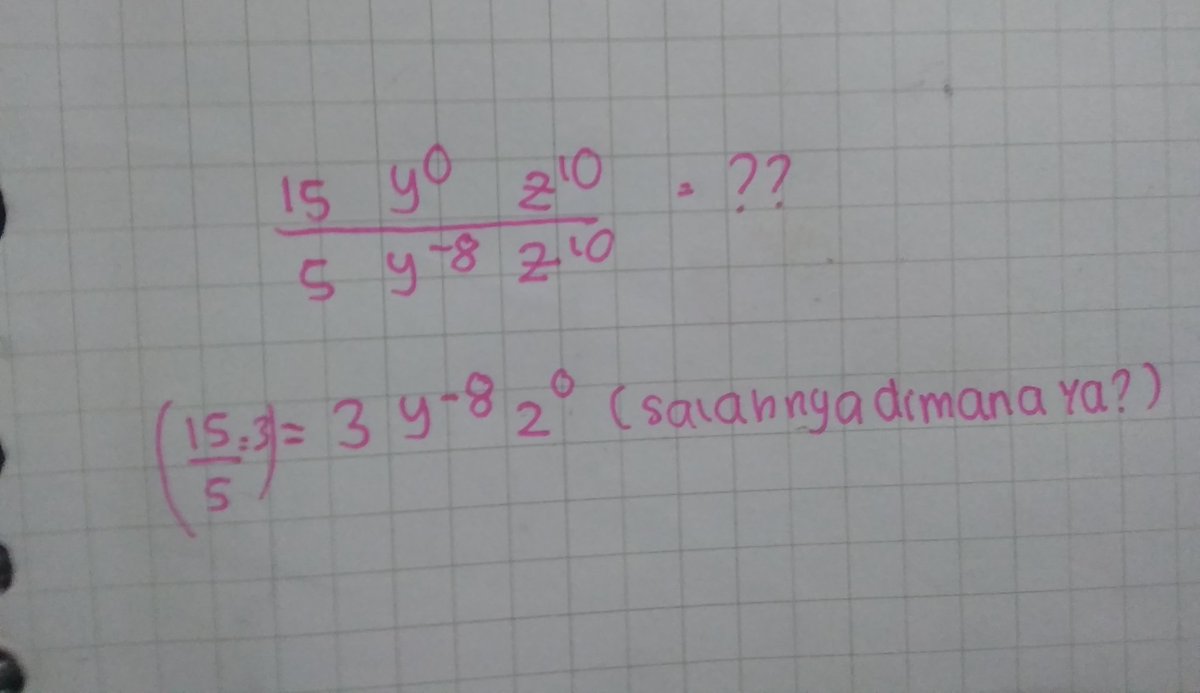 15 y⁰ z¹⁰ = ??
5 y⁻⁸ z¹⁰
(15/5=3)= 3 y⁻⁸ z⁰ (salahnya dimana ya?)